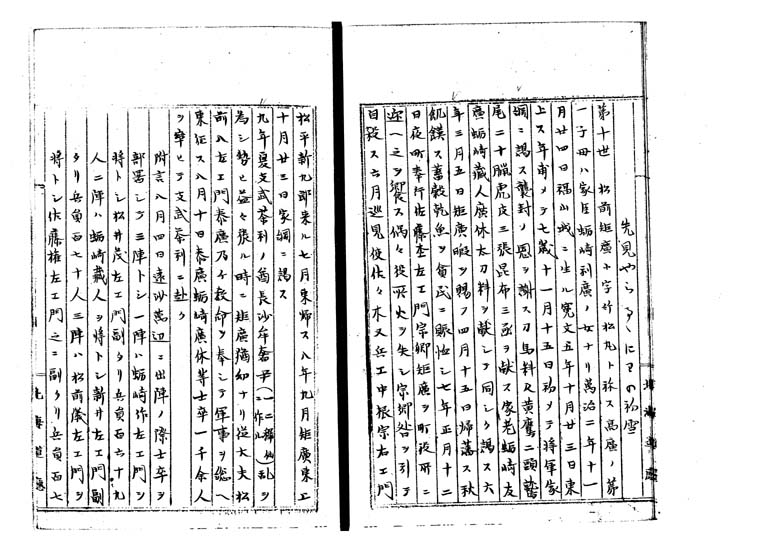 先見やらるゝにわの初雪
第十世 松前矩廣小字竹松丸ト称ス高廣ノ第
一子母ハ家臣蛎崎利廣ノ女ナリ萬治二年十一
月廿四日福山城ニ生ル寛文五年十月廿三日東
上ス年甫メテ七歳十一月十五日初メテ将軍家
綱ニ謁ス襲封ノ恩ヲ謝ス刀馬料及黄鷹二頭
尾二十臘虎皮三張昆布三函ヲ献ス家老蛎崎友
廣蛎崎藏人廣休太刀料ヲ献シテ同シク謁ス六
年三月五日矩廣暇ヲ賜フ四月十五日帰藩ス秋
飢饉ス蓄穀乾魚ヲ貧民ニ賑恤シ七年正月十二
日夜町奉行佐藤杢左エ門宗卿矩廣ヲ町役所ニ
迎ヘ之ヲ饗ス偶々役所火ヲ失シ宗卿咎ヲ引テ
自殺ス六月巡見使佐々木又兵エ中根宗右エ門
松平新九郎来ル七月東帰ス八年九月矩廣東上
十月廿三日家綱ニ謁ス
九年夏支武茶利ノ酋長沙牟奢尹(一ニ作ル)乱ヲ
為シ勢ヒ益々張ル時ニ矩廣猶幼ナリ従大夫松
前八左エ門泰廣乃チ教命ヲ奉シテ軍事ヲ総ヘ
東征ス八月十日泰廣蛎崎廣休等士卒一千余人
ヲ率ヒテ支武茶利ニ赴ク
附言八月四日遠沙萬辺ニ出陣ノ際士卒ヲ
部署シテ三陣トシ一陣ハ蛎崎作左エ門ヲ
将トシ松井茂左エ門副タリ兵員百六十九
人二陣ハ蛎崎藏人ヲ将トシ新井左エ門副
タリ兵員百七十人三陣ハ松前儀左エ門ヲ
将トシ佐藤権左エ門之ニ副タリ兵員百七